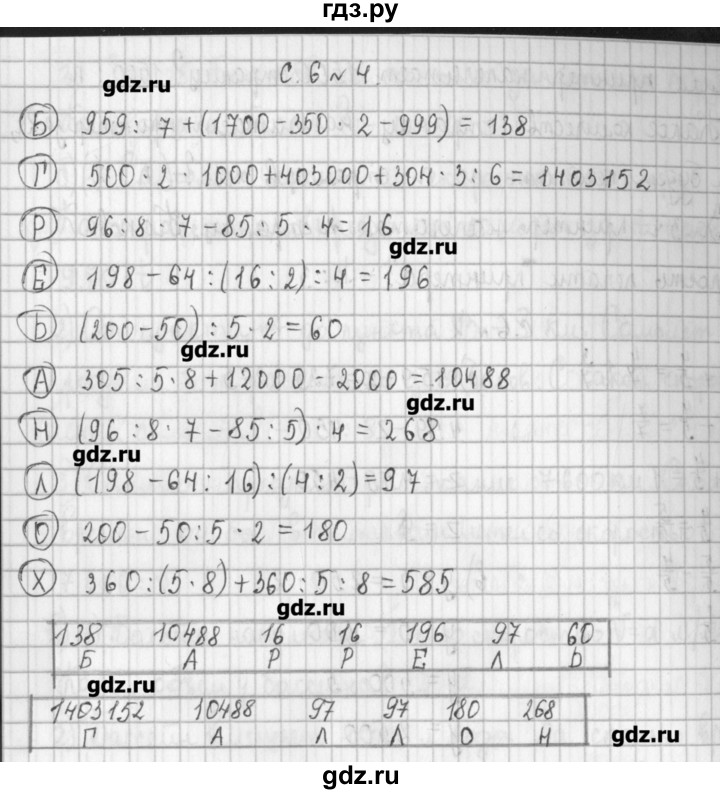 гдз.ру
с. 6 № 4.
gdz.ru
Б 959 : 7 + (1700 - 350 · 2 - 999) = 138
Г 500 · 2 · 1000 + 403000 + 304 · 3 : 6 = 1403152
Р 96 : 8 · 7 - 85 : 5 · 4 = 16
gdz.ru
Е 198 - 64 : (16 : 2) : 4 = 196
Ь (200 - 50) : 5 · 2 = 60
gdz.ru
А 305 : 5 · 8 + 12000 - 2000 = 10488
gdz.ru
Н (96 : 8 · 7 - 85 : 5) · 4 = 268
gdz.ru
Л (198 - 64 : 16) : (4 : 2) = 97
О 200 - 50 : 5 · 2 = 180
Х 360 : (5 · 8) + 360 : 5 : 8 = 585
gdz.ru
138 10488 16 16 196 97 60
Б А Р Р Е Л Ь
gdz.ru
1403152 10488 97 97 180 268
Г А Л Л О Н
gdz.ru
gdz.ru